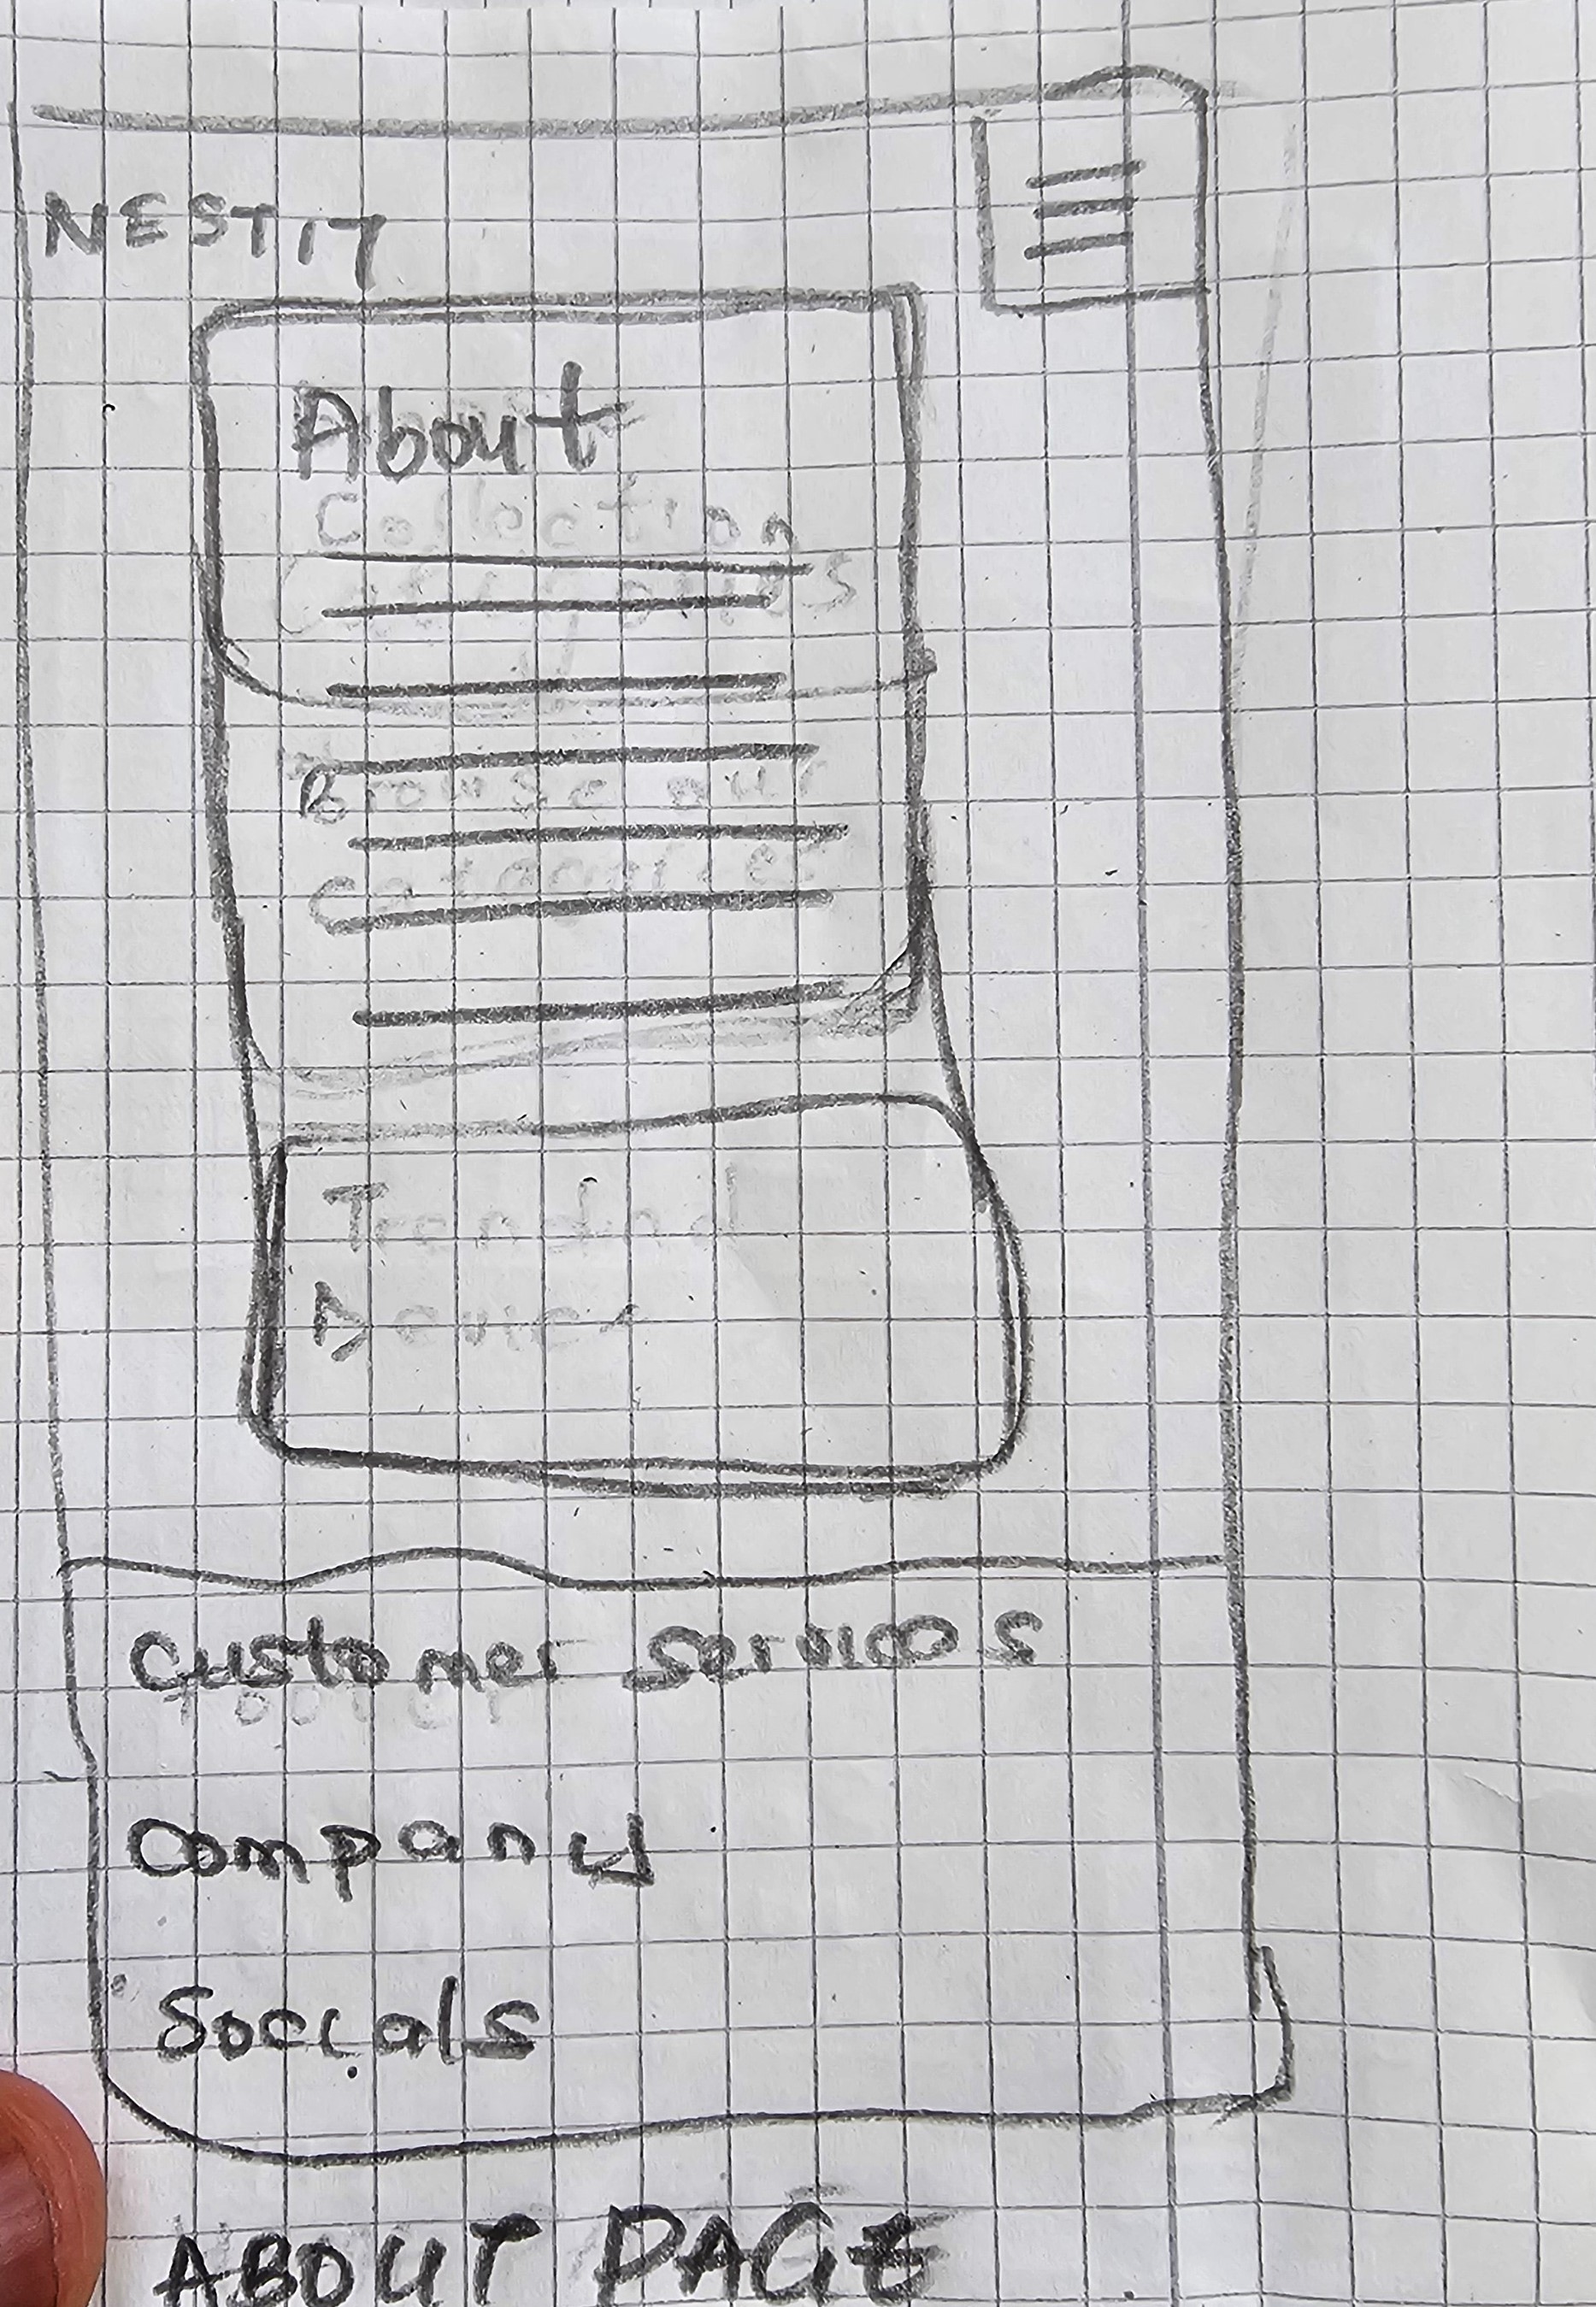 NESTIT
About
Collection
Categories
Browse our
Categories
Customer services
footer
Company
Socials
ABOUT PAGE